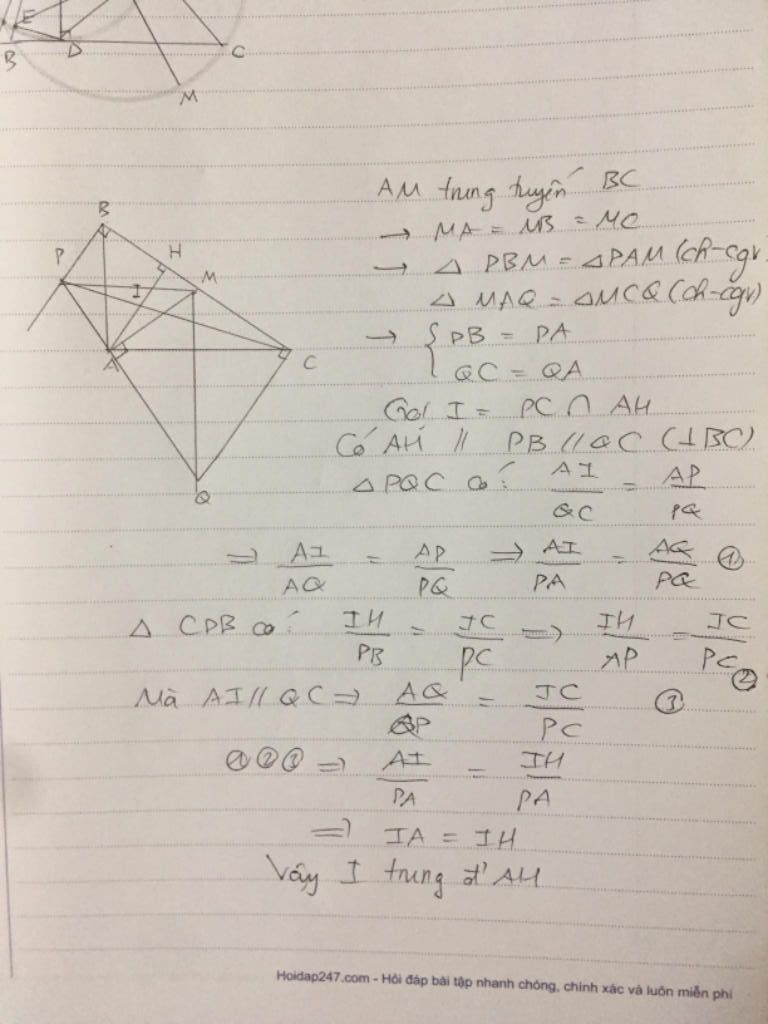 E
B
D
C
M
B
P
H
I
M
A
C
Q
AM trung tuyến BC
→ MA = MB = MC
→ Δ PBM = ΔPAM (ch-cgv)
Δ MAQ = ΔMCQ (ch-cgv)
→ { PB = PA
QC = QA
Gọi I = PC ∩ AH
Có AH // PB // QC (⊥BC)
Δ PQC có: AI/QC = AP/PQ
⇒ AI/AQ = AP/PQ ⇒ AI/PA = AQ/PQ ①
Δ CPB có: IH/PB = IC/PC ⇒ IH/AP = IC/PC ②
Mà AI // QC ⇒ AQ/QP = IC/PC ③
①②③ ⇒ AI/PA = IH/PA
⇒ IA = IH
Vậy I trung đ' AH
Hoidap247.com - Hỏi đáp bài tập nhanh chóng, chính xác và luôn miễn phí